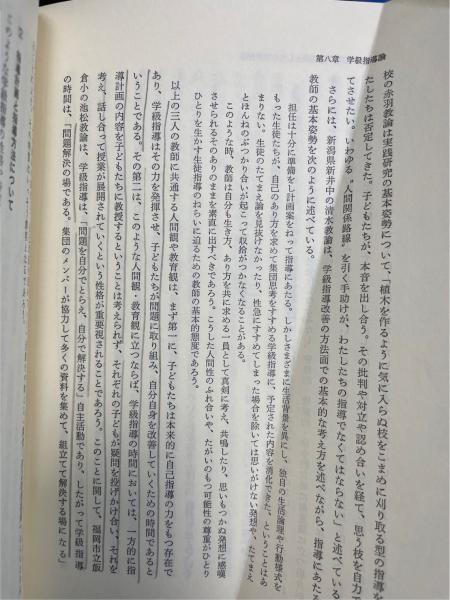 第八章　学級指導論
校の赤羽教諭は実践研究の基本姿勢について、「植木を作るように気に入らぬ枝をこまめに刈り取る型の指導を
たしたちは否定してきた。子どもたちが、本音を出し合う。その批判や対立や認め合いを経て、思う枝を自力で
てさせたい。いわゆる〝人間関係路線〟を引く手助けが、わたしたちの指導でなくてはならない」と述べている
さらには、新潟県新井中の清水教諭は、学級指導改善の方法面での基本的な考え方を述べながら、指導にあたる
教師の基本姿勢を次のように述べている。
担任は十分に準備をし計画案をねって指導にあたる。しかしさまざまに生活背景を異にし、独自の生活論理や行動様式を
もった生徒たちが、自己のあり方を求めて集団思考をすすめる学級指導に、予定された内容を消化できた、ということはあ
まりない。生徒のたてまえ論を見抜けなかったり、性急にすすめてしまった場合を除いては思いがけない発想や、たてまえ
とほんねのぶつかり合いが起こって収拾がつかなくなることがある。
このような時、教師は自分も生き方、あり方を共に求める一員として真剣に考え、共鳴したり、思いもつかぬ発想に感嘆
させられるそのありのままを素直に出すべきであろう。こうした人間性のふれ合いや、たがいのもつ可能性の尊重がひとり
ひとりを生かす生徒指導のねらいに迫るための教師の基本的態度であろう。
以上の三人の教師に共通する人間観や教育観は、まず第一に、子どもたちは本来的に自己指導の力をもつ存在で
あり、学級指導はその力を発揮させ、子どもたちが問題に取り組み、自分自身を改善していくための時間であると
いうことである。その第二は、このような人間観・教育観に立つならば、学級指導の時間においては、一方的に指
導計画の内容を子どもたちに教授するということは考えられず、それぞれの子どもが疑問を投げかけ合い、それを
考え、話し合って授業が展開されていくという性格が重要視されることであろう。このことに関して、福岡市立飯
倉小の池松教諭は、学級指導は、「問題を自分でとらえ、自分で解決する」自主活動であり、したがって学級指導
の時間は、「問題解決の場である。集団のメンバーが協力して多くの資料を集めて、組立てて解決する場になる」